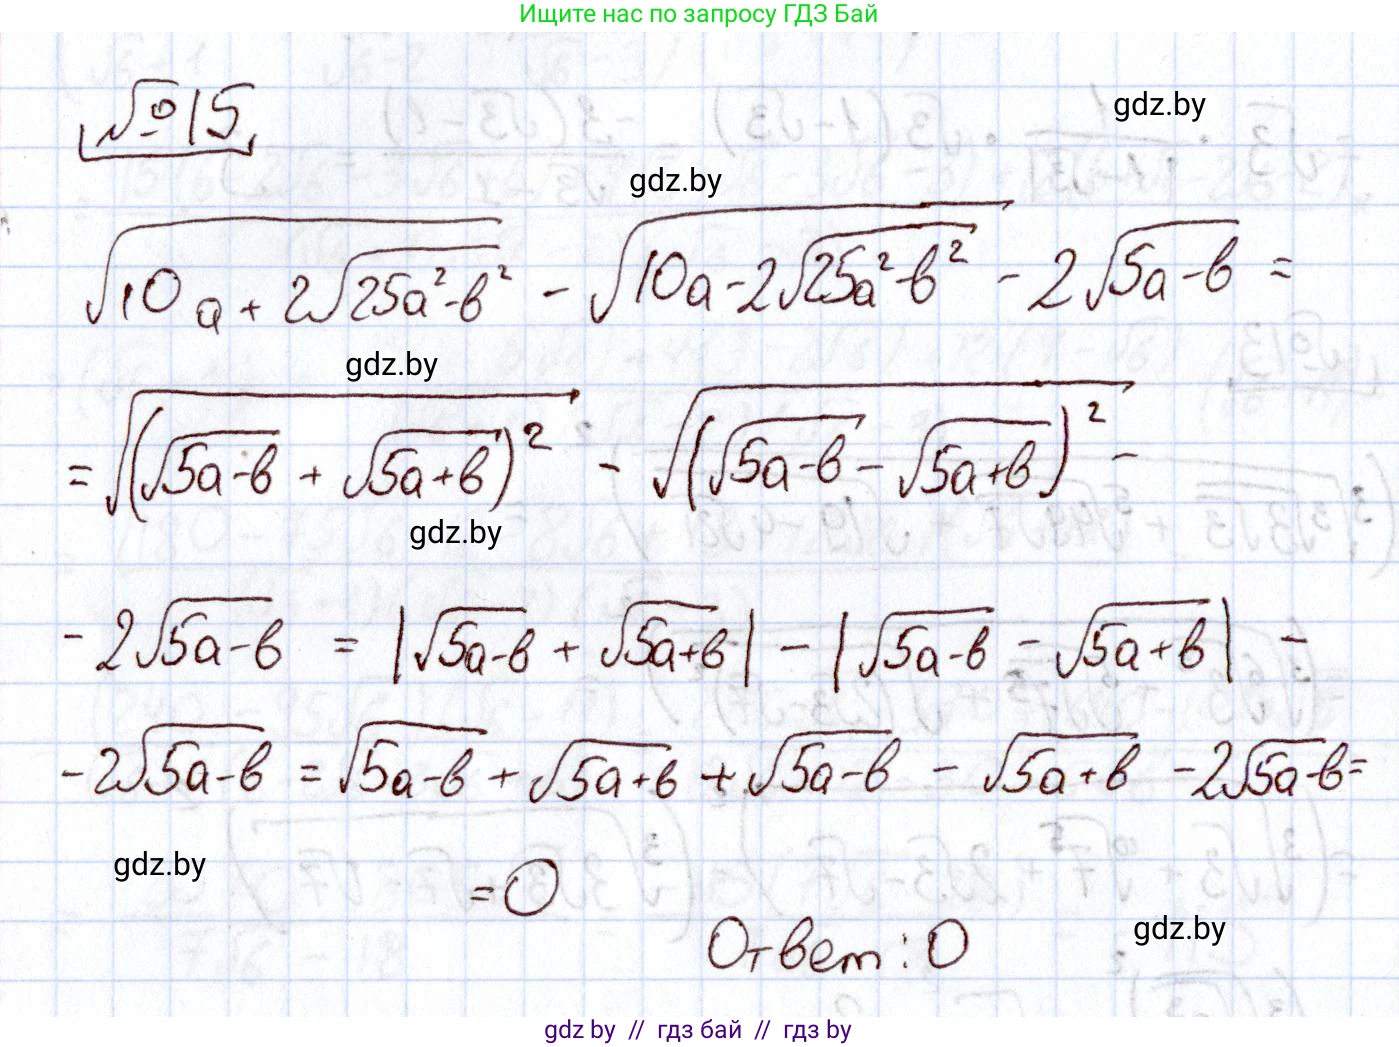 Ищите нас по запросу ГДЗ Бай
№15
gdz.by
gdz.by
√(10a + 2√(25a²-b²)) - √(10a - 2√(25a²-b²)) - 2√(5a-b) =
gdz.by
= √((√(5a-b) + √(5a+b))²) - √((√(5a-b) - √(5a+b))²) -
gdz.by
- 2√(5a-b) = |√(5a-b) + √(5a+b)| - |√(5a-b) - √(5a+b)| -
- 2√(5a-b) = √(5a-b) + √(5a+b) + √(5a-b) - √(5a+b) - 2√(5a-b) =
gdz.by
= 0
Ответ: 0
gdz.by
gdz.by // гдз бай // гдз by